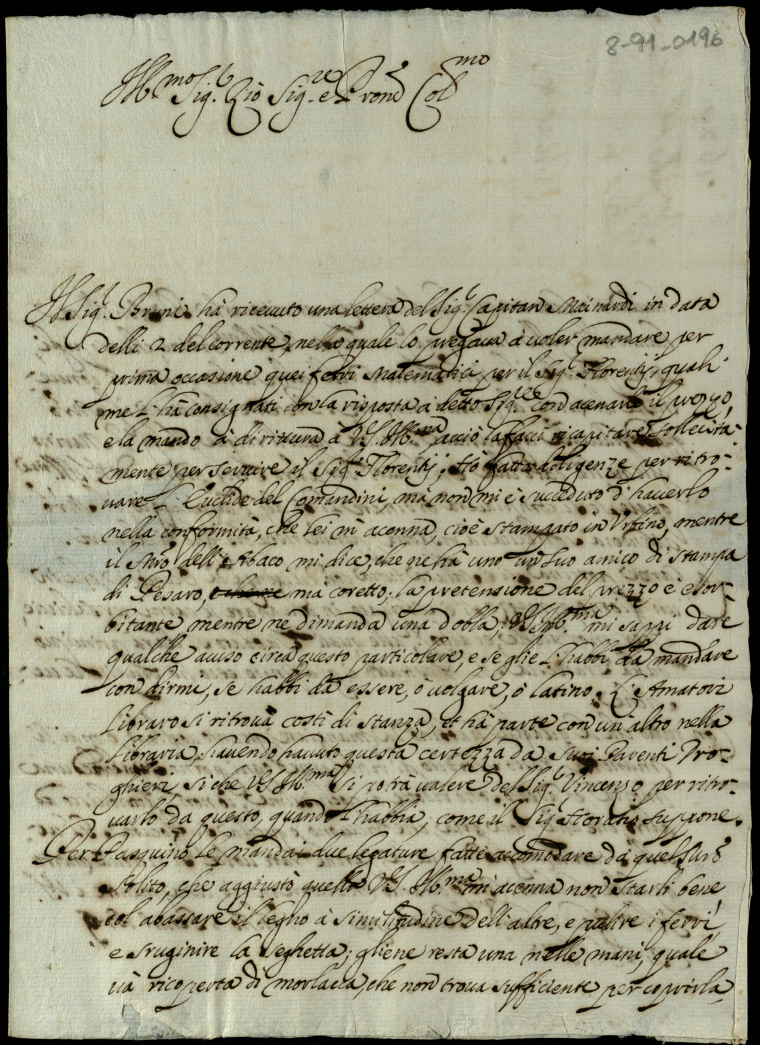 8-91-0196
Ill.mo Sig.r Zio Sig.re e Pron Col.mo
Il Sig.r Bruni hà riceuuto una lettera del Sig.r Capitan Mainardi in data
delli 2 del corrente, nella quale lo pregaua à uoler mandare per
prima occasione quei ferri Matematici per il Sig.r Florentij, quali
me l'hà consignati con la risposta à detto Sig.re con acenarli il prezzo,
e la mando à dirittura à V.S. Ill.ma acciò la facci ricapitare sollecita-
mente per seruire il Sig.r Florentij; Hò fatto diligenze per ritro-
uare l'Euclide del Comandini, mà non mi è succeduto d'hauerlo
nella conformità, che lei m'acenna, cioè stampato in Urbino, mentre
il Mro dell'Abaco mi dice, che ne hà uno un suo amico di stampa
di Pesaro, mà coretto; la pretensione del prezzo è esor-
bitante mentre ne dimanda una dobla; V.S. Ill.ma mi sappi dare
qualche auiso circa questo particolare, e se glie l'habbi da mandare
con dirmi, se habbi da essere, ò uolgare, ò latino. L'Amatori
Libraro si ritroua costi di stanza, et hà parte con un altro nella
libraria, hauendo hauuto questa certezza da suoi Parenti Dro-
ghieri, si che V.S. Ill.ma si potrà ualere del Sig.r Vincenzo per ritro-
uarlo da questo, quando l'habbia, come il Sig.r Horatio suppone.
Per Pasquino le mandai due legature fatte acomodare da quel
solito, che aggiustò quella V.S. Ill.ma m'acenna non starli bene
col abassare il legno à similitudine dell'altre, e pulire i ferri,
e sruginire la seghetta; gliene resta una nelle mani, quale
uà ricoperta di morlacca, che non troua sufficiente per coprirla